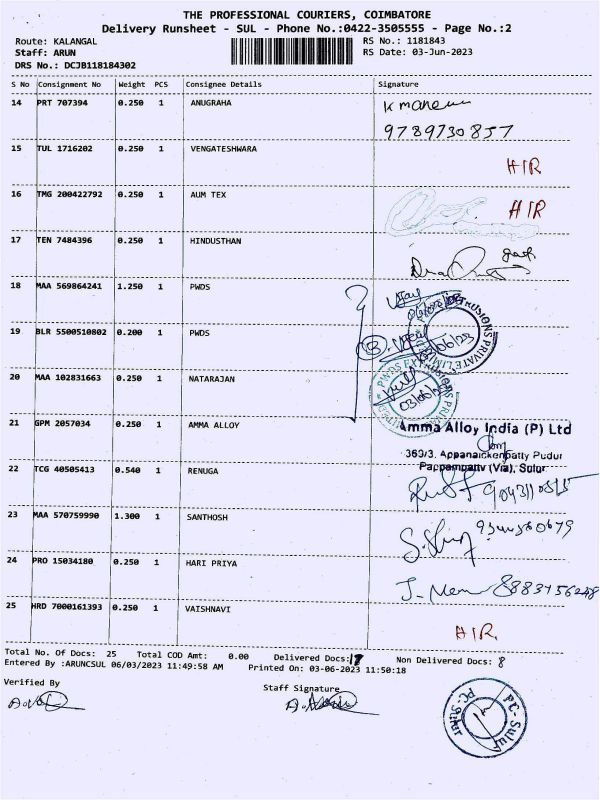 THE PROFESSIONAL COURIERS, COIMBATORE
Delivery Runsheet - SUL - Phone No.:0422-3505555 - Page No.:2
Route: KALANGAL
RS No.: 1181843
Staff: ARUN
RS Date: 03-Jun-2023
DRS No.: DCJB118184302
S No Consignment No Weight PCS Consignee Details Signature
14 PRT 707394 0.250 1 ANUGRAHA
9789730857
15 TUL 1716202 0.250 1 VENGATESHWARA
AIR
16 TMG 200422792 0.250 1 AUM TEX AIR
17 TEN 7484396 0.250 1 HINDUSTHAN
18 MAA 569864241 1.250 1 PWDS
19 BLR 5500510802 0.200 1 PWDS
03/06/23
20 MAA 102831663 0.250 1 NATARAJAN
21 GPM 2057034 0.250 1 AMMA ALLOY
Amma Alloy India (P) Ltd
363/3. Appanaickenpatty Pudur
Pappampatty (Via), Sulur
22 TCG 40505413 0.540 1 RENUGA
23 MAA 570759990 1.300 1 SANTHOSH
24 PRO 15034180 0.250 1 HARI PRIYA
25 HRD 7000161393 0.250 1 VAISHNAVI
AIR
Total No. Of Docs: 25 Total COD Amt: 0.00 Delivered Docs: 17 Non Delivered Docs: 8
Entered By :ARUNCSUL 06/03/2023 11:49:58 AM Printed On: 03-06-2023 11:50:18
Verified By
Staff Signature
PC-Sulur
PC-Sulur